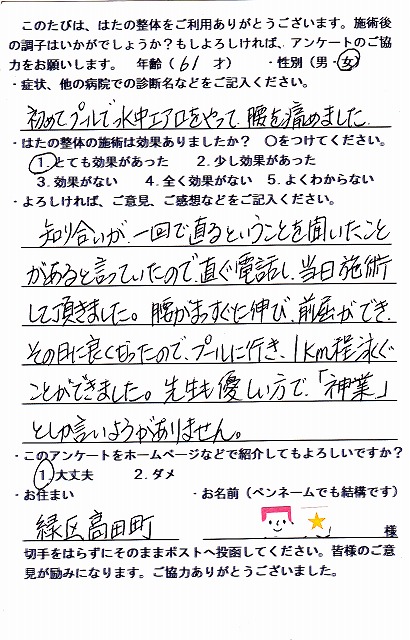 このたびは、はたの整体をご利用ありがとうございます。施術後
の調子はいかがでしょうか?もしよろしければ、アンケートのご協
力をお願いします。 年齢(61 才) ・性別(男・女)
・症状、他の病院での診断名などをご記入ください。
初めてプールで水中エアロをやって、腰を痛めました。
・はたの整体の施術は効果ありましたか? 〇をつけてください。
1.とても効果があった 2.少し効果があった
3.効果がない 4.全く効果がない 5.よくわからない
・よろしければ、ご意見、ご感想などをご記入ください。
知り合いが、一回で直るということを聞いたこと
があると言っていたので、直ぐ電話し、当日施術
して頂きました。腰がまっすぐに伸び、前屈ができ、
その日に良くなったので、プールに行き、1km程泳ぐ
ことができました。先生も優しい方で、「神業」
としか言いようがありません。
・このアンケートをホームページなどで紹介してもよろしいですか?
1.大丈夫 2.ダメ
・お住まい ・お名前(ペンネームでも結構です)
緑区高田町 様
切手をはらずにそのままポストへ投函してください。皆様のご意
見が励みになります。ご協力ありがとうございました。